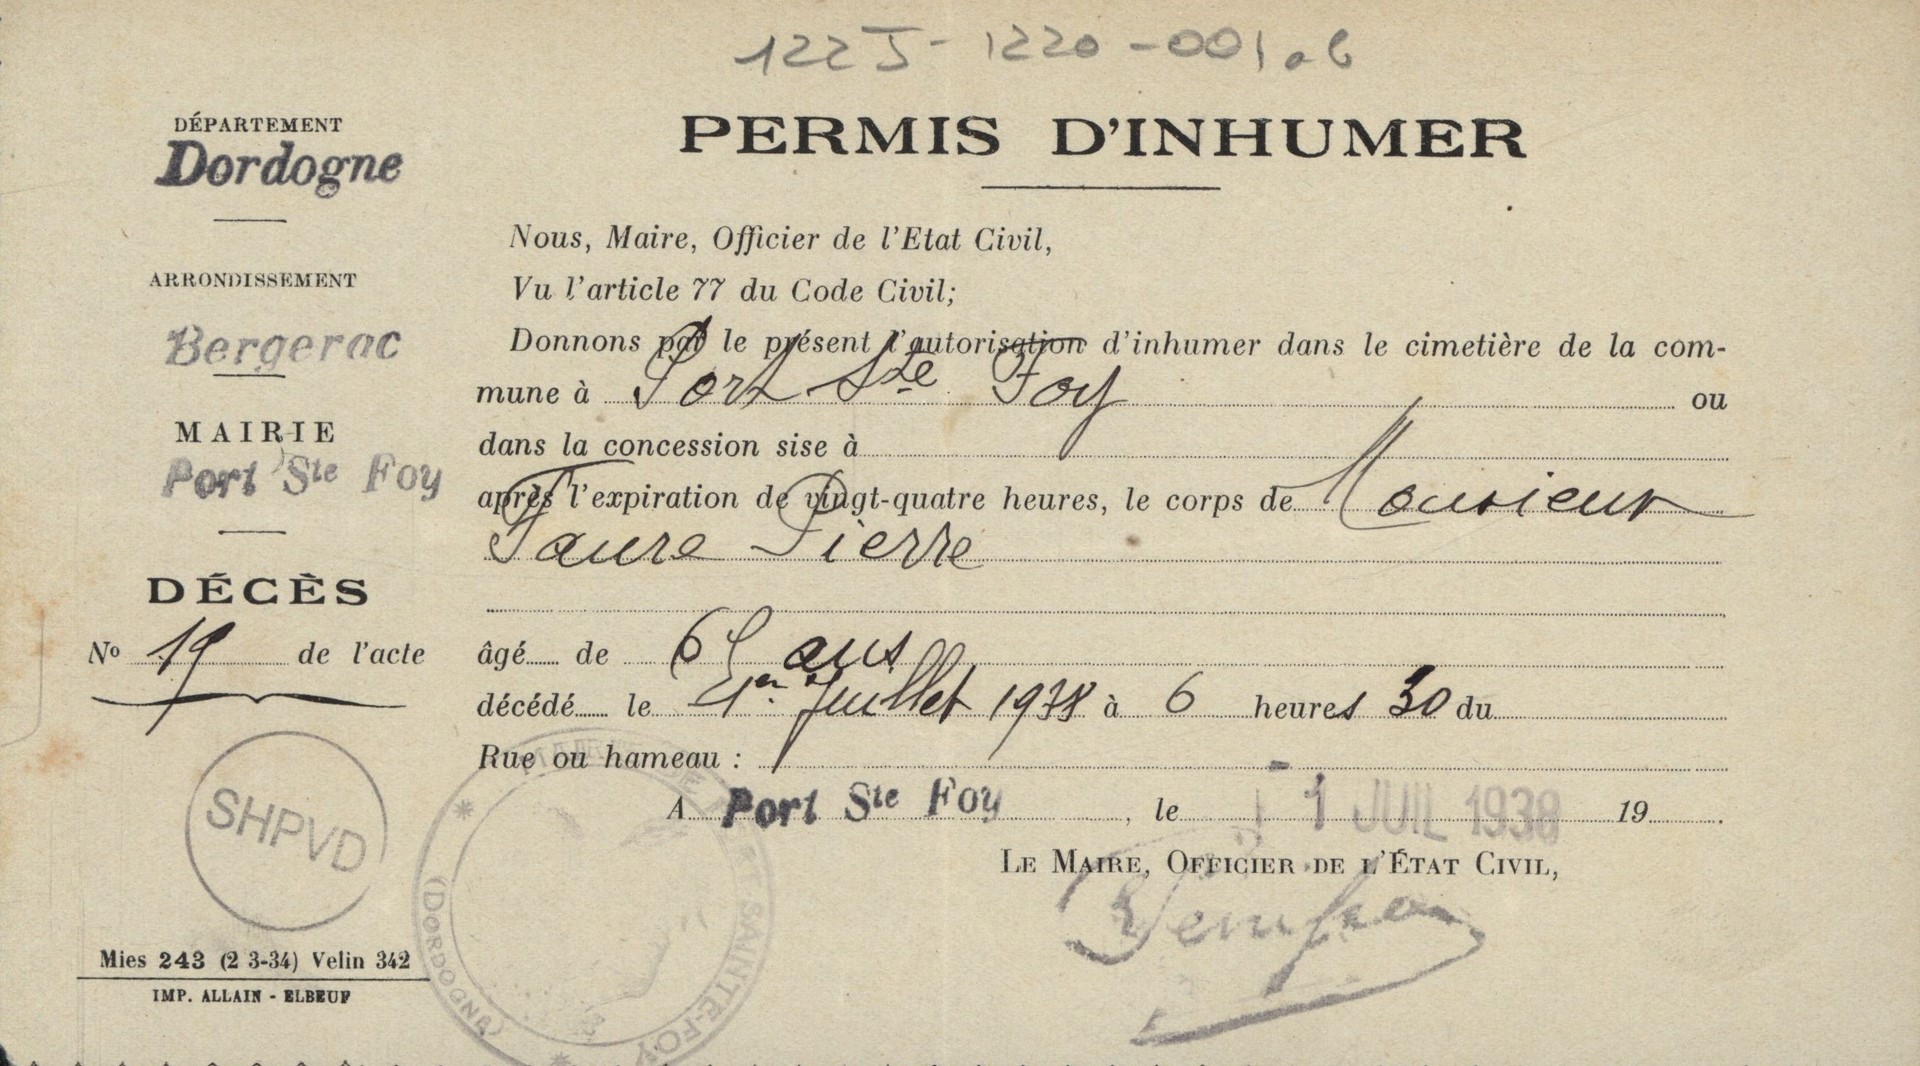 122 J - 1220 - 001 a b
PERMIS D'INHUMER
DÉPARTEMENT
Dordogne
ARRONDISSEMENT
Bergerac
MAIRIE
Port Ste Foy
DÉCÈS
No 19 de l'acte
SHPVD
Mies 243 (2 3-34) Velin 342
IMP. ALLAIN - ELBEUF
Nous, Maire, Officier de l'Etat Civil,
Vu l'article 77 du Code Civil;
Donnons par le présent l'autorisation d'inhumer dans le cimetière de la com-
mune à Port Ste Foy ou
dans la concession sise à
après l'expiration de vingt-quatre heures, le corps de Monsieur
Faure Pierre
âgé de ans
décédé le 1er Juillet 1938 à 6 heures 30 du
Rue ou hameau :
A Port Ste Foy, le - 1 JUIL 1938 19
LE MAIRE, OFFICIER DE L'ÉTAT CIVIL,
SAINTE-FOY
(DORDOGNE)